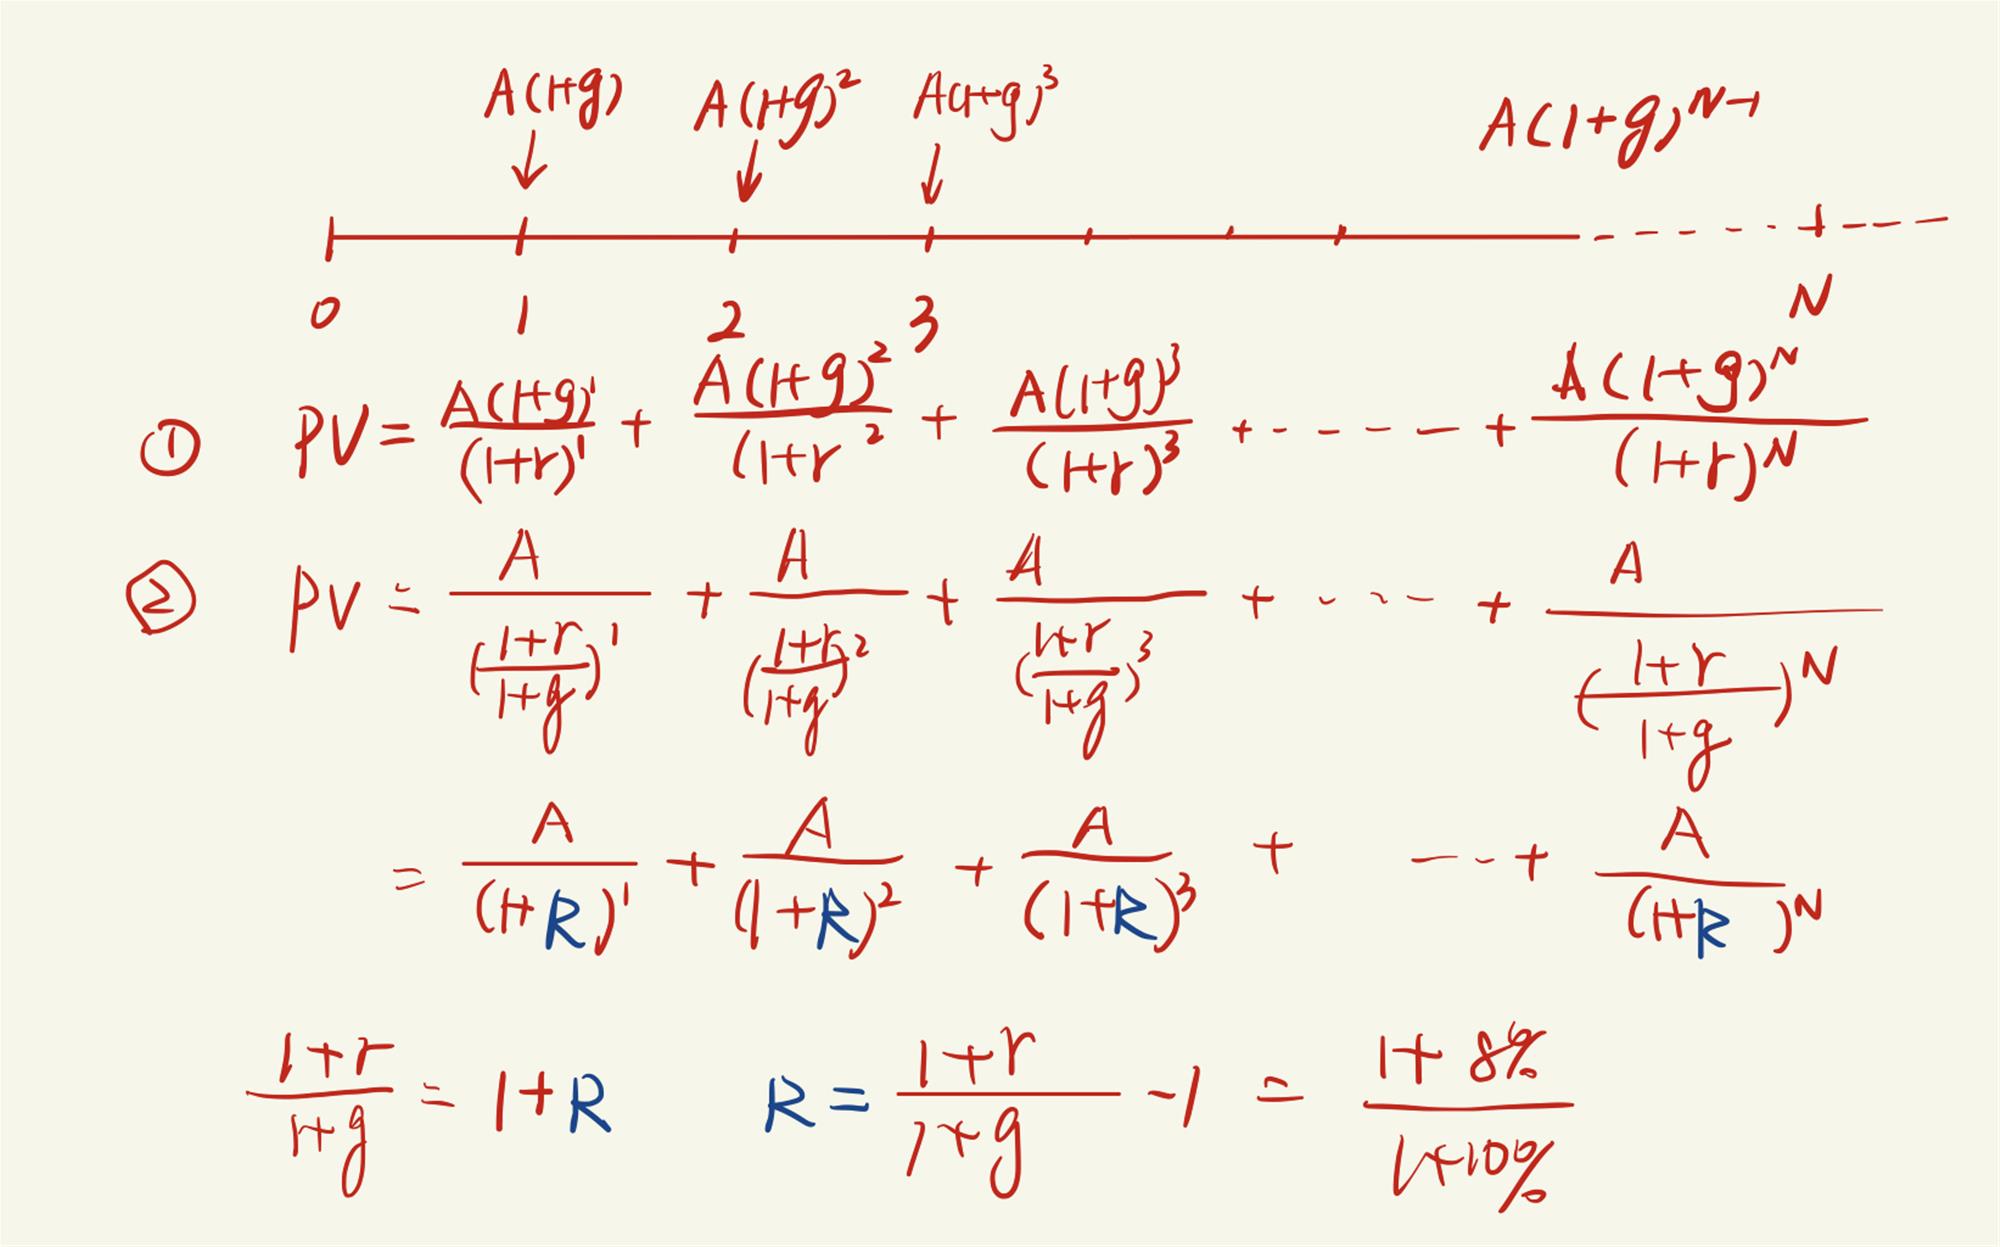 A(1+g) A(1+g)² A(1+g)³ A(1+g)^N-1
0 1 2 3 N
① PV = A(1+g)¹/(1+r)¹ + A(1+g)²/(1+r ² + A(1+g)³/(1+r)³ + ---- + A(1+g)^N/(1+r)^N
② PV = A/((1+r)/(1+g))¹ + A/((1+r)/(1+g))² + A/((1+r)/(1+g))³ + ---- + A/((1+r)/(1+g))^N
= A/(1+R)¹ + A/(1+R)² + A/(1+R)³ + --- + A/(1+R)^N
(1+r)/(1+g) = 1+R R = (1+r)/(1+g) -1 = (1+8%)/(1+10%)